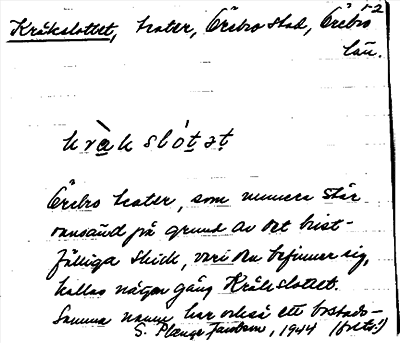 52
Kråkslottet, teater, Örebro stad, Örebro
län.
kràkslótət
Örebro teater, som numera står
oanvänd på grund av det brist-
fälliga skick, vari den befinner sig,
kallas någon gång Kråkslottet.
Samma namn har också ett bostads-
S. 1944 (forts.)